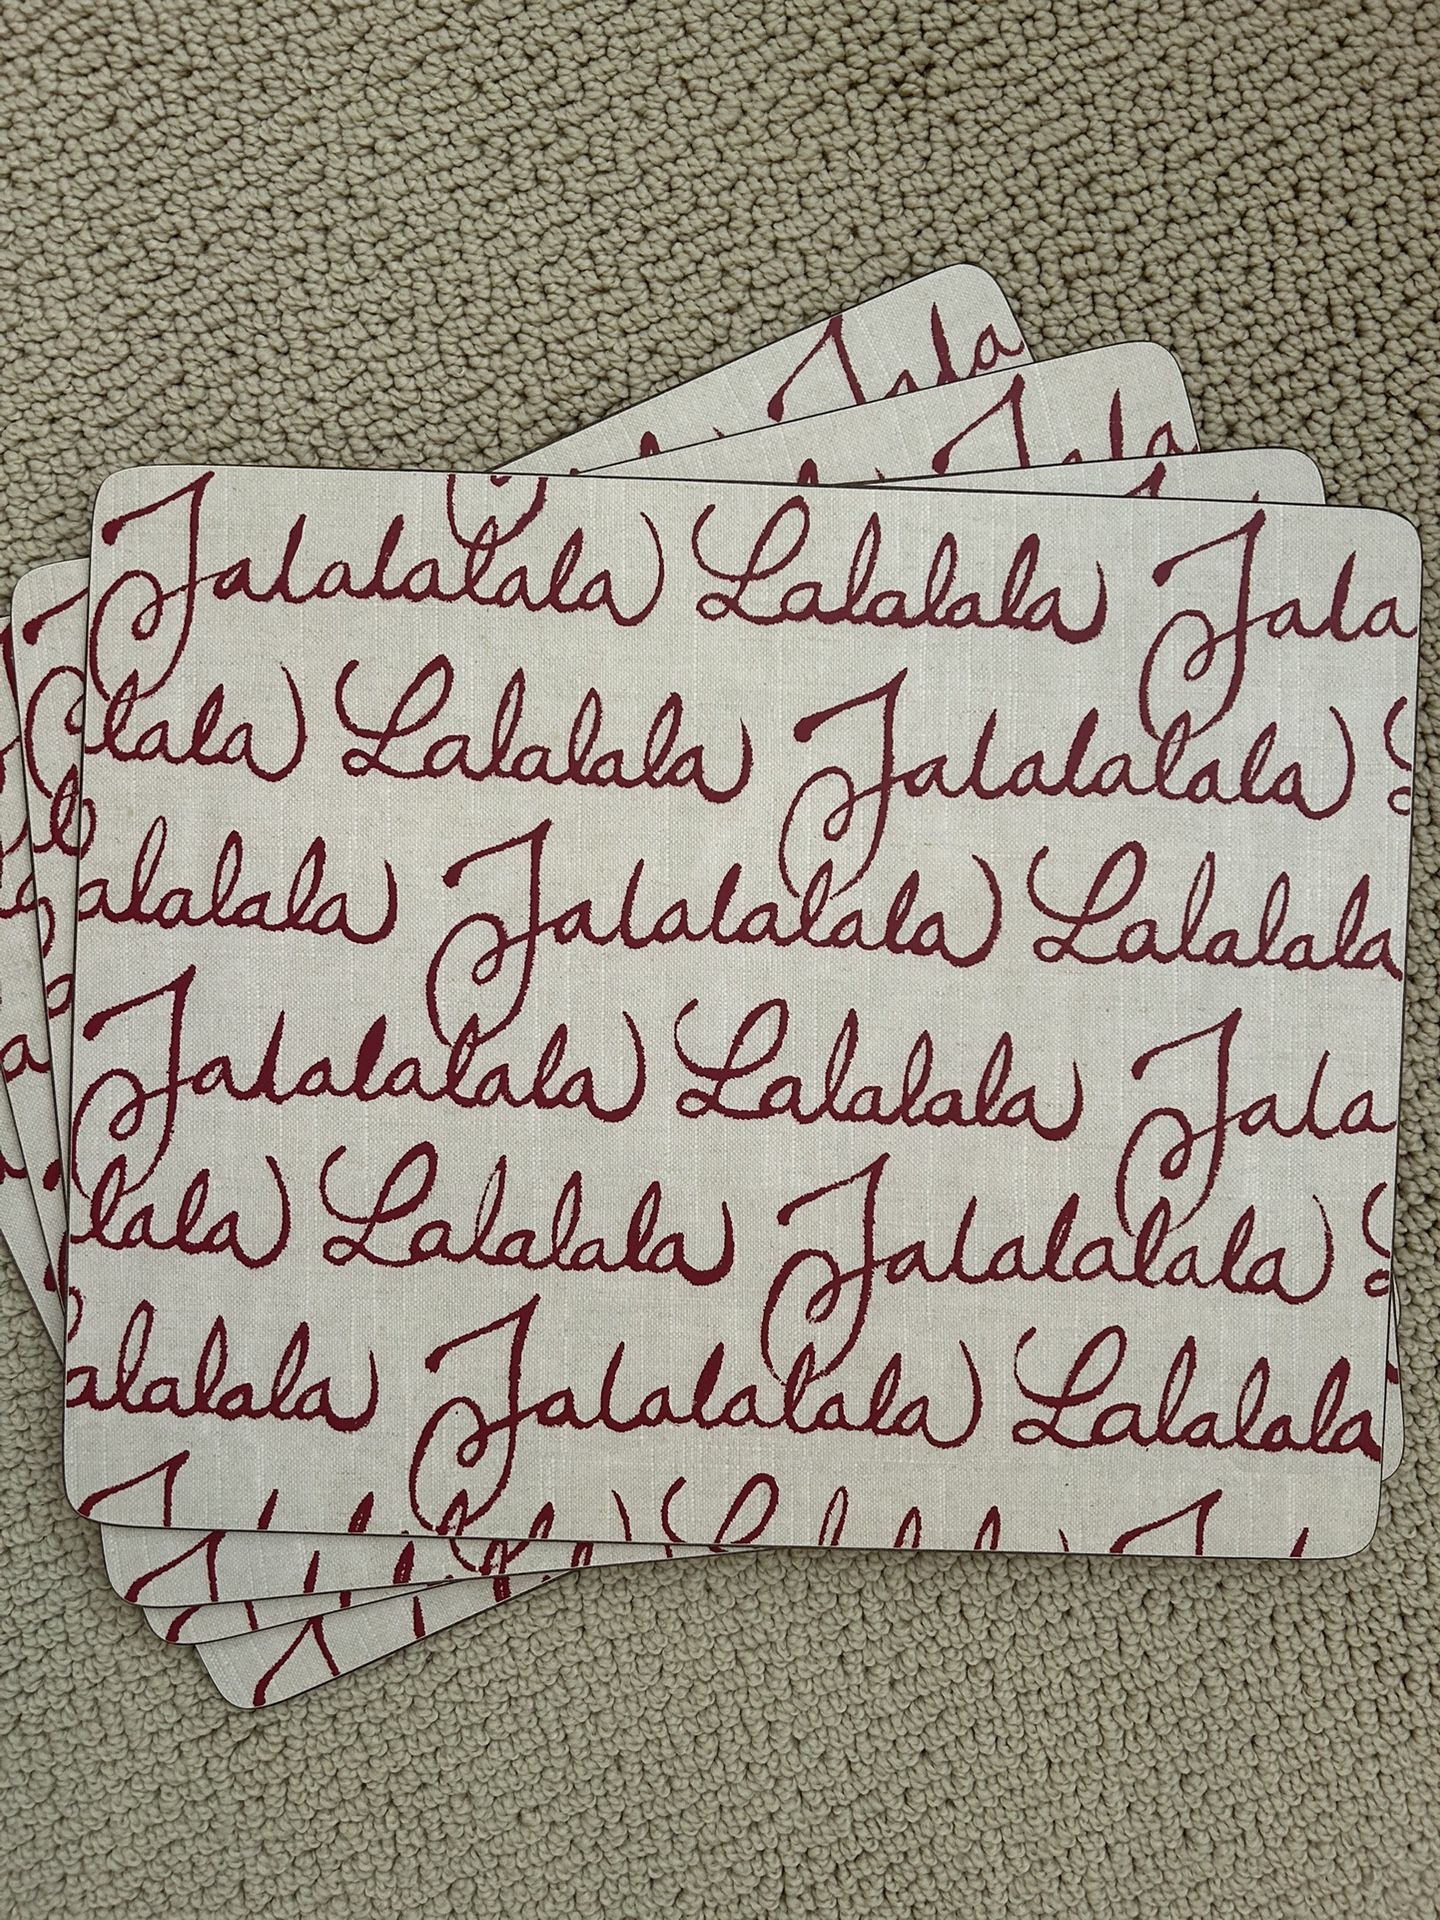 Falalalala Lalalala Fala
lala Lalalala Falalalala
alalala Falalalala Lalalala
Falalalala Lalalala Fala
lala Lalalala Falalalala
alalala Falalalala Lalalala